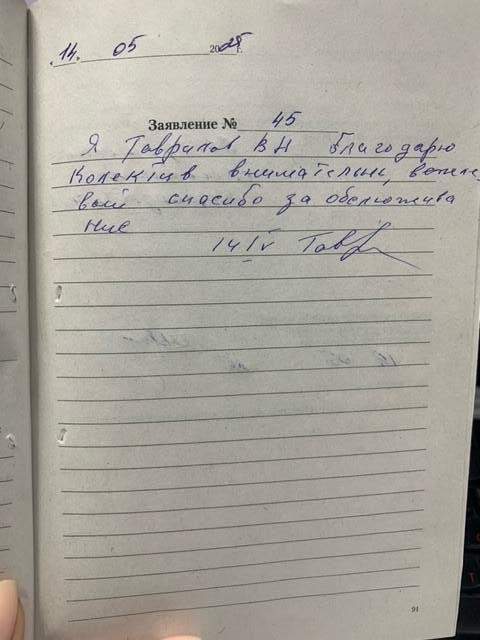 14. 05 2025 г.
Заявление № 45
Я Гаврилов В Н благодарю
Колектив внимательны, вежли
вый спасибо за обслюжива
ние
14 IV Гав
91